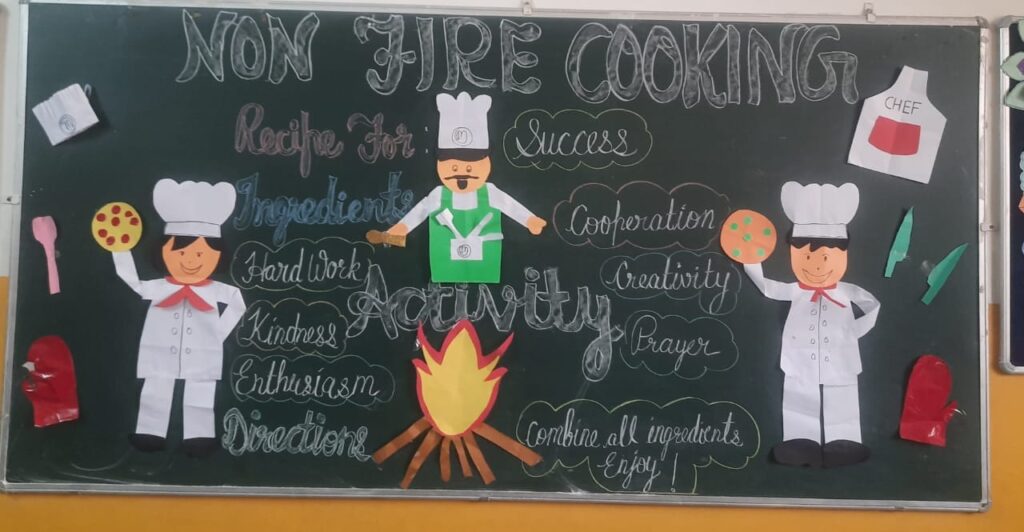 NON FIRE COOKING
CHEF
Recipe For :
Success
Ingredients
Cooperation
Hard Work
Creativity
Activity
Kindness
Prayer
Enthusiasm
Directions
Combine all ingredients,
Enjoy!